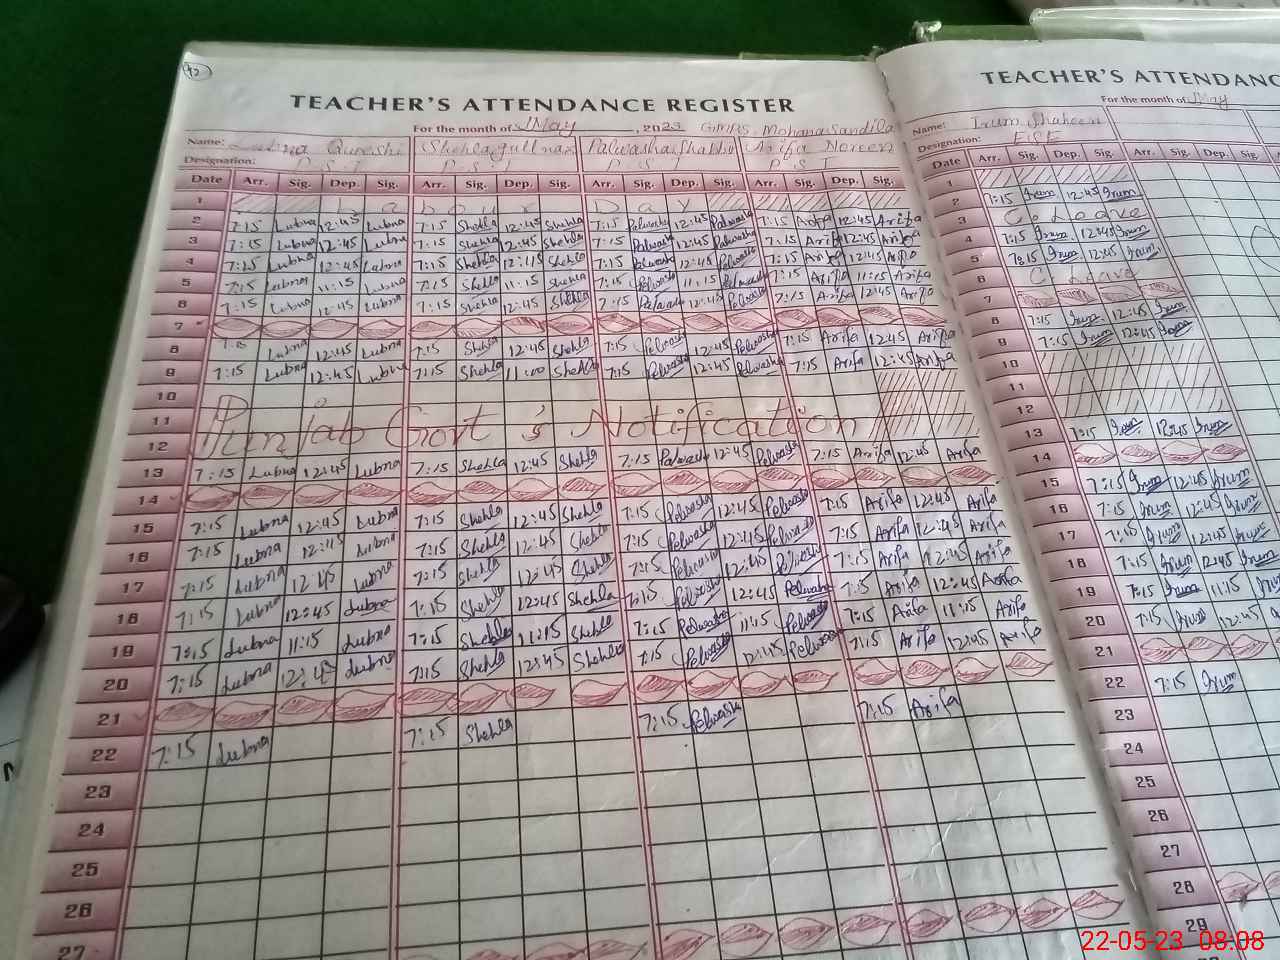 42
TEACHER'S ATTENDANCE REGISTER
For the month of May, 2023 GMPS. Mohana Sandila
Name: Lubna Qureshi Shehla gull naz Palwasha Shabbir Arifa Noreen
Designation: P S T P. S. T P S T P S T
Date Arr. Sig. Dep. Sig. Arr. Sig. Dep. Sig. Arr. Sig. Dep. Sig. Arr. Sig. Dep. Sig.
1 Labour Day
2 7:15 Lubna 12:45 Lubna 7:15 Shehla 12:45 Shehla 7:15 Palwasha 12:45 Palwasha 7:15 Arifa 12:45 Arifa
3 7:15 Lubna 12:45 Lubna 7:15 Shehla 12:45 Shehla 7:15 Palwasha 12:45 Palwasha 7:15 Arifa 12:45 Arifa
4 7:15 Lubna 12:45 Lubna 7:15 Shehla 12:45 Shehla 7:15 Palwasha 12:45 Palwasha 7:15 Arifa 12:45 Arifa
5 7:15 Lubna 11:15 Lubna 7:15 Shehla 11:15 Shehla 7:15 Palwasha 11:15 Palwasha 7:15 Arifa 11:15 Arifa
6 7:15 Lubna 12:45 Lubna 7:15 Shehla 12:45 Shehla 7:15 Palwasha 12:45 Palwasha 7:15 Arifa 12:45 Arifa
7
8 7:15 Lubna 12:45 Lubna 7:15 Shehla 12:45 Shehla 7:15 Pelwasha 12:45 Pelwasha 7:15 Arifa 12:45 Arifa
9 7:15 Lubna 12:45 Lubna 7:15 Shehla 11:00 Shehla 7:15 Pelwasha 12:45 Pelwasha 7:15 Arifa 12:45 Arifa
10
11 Punjab Govt's Notification
12
13 7:15 Lubna 12:45 Lubna 7:15 Shehla 12:45 Shehla 7:15 Palwasha 12:45 Pelwasha 7:15 Arifa 12:45 Arifa
14
15 7:15 Lubna 12:45 Lubna 7:15 Shehla 12:45 Shehla 7:15 Pelwasha 12:45 Pelwasha 7:15 Arifa 12:45 Arifa
16 7:15 Lubna 12:45 Lubna 7:15 Shehla 12:45 Shehla 7:15 Pelwasha 12:45 Pelwasha 7:15 Arifa 12:45 Arifa
17 7:15 Lubna 12:45 Lubna 7:15 Shehla 12:45 Shehla 7:15 Pelwasha 12:45 Pelwasha 7:15 Arifa 12:45 Arifa
18 7:15 Lubna 12:45 Lubna 7:15 Shehla 12:45 Shehla 7:15 Pelwasha 12:45 Pelwasha 7:15 Arifa 12:45 Arifa
19 7:15 Lubna 11:15 Lubna 7:15 Shehla 11:15 Shehla 7:15 Pelwasha 11:15 Pelwasha 7:15 Arifa 11:15 Arifa
20 7:15 Lubna 12:45 Lubna 7:15 Shehla 12:45 Shehla 7:15 Pelwasha 12:45 Pelwasha 7:15 Arifa 12:45 Arifa
21
22 7:15 Lubna 7:15 Shehla 7:15 Pelwasha 7:15 Arifa
23
24
25
26
27
TEACHER'S ATTENDANC
For the month of May
Name: Irum Shaheen
Designation: ESE
Date Arr. Sig. Dep. Sig. Arr. Sig. Dep. Sig. Arr.
1
2 7:15 Irum 12:45 Irum
3 C. Leave
4 7:15 Irum 12:45 Irum
5 7:15 Irum 12:45 Irum
6 C. Leave
7
8 7:15 Irum 12:45 Irum
9 7:15 Irum 12:45 Irum
10
11
12
13 7:15 Irum 12:45 Irum
14
15 7:15 Irum 12:45 Irum
16 7:15 Irum 12:45 Irum
17 7:15 Irum 12:45 Irum
18 7:15 Irum 12:45 Irum
19 7:15 Irum 11:15
20 7:15 Irum 12:45
21
22 7:15 Irum
23
24
25
26
27
28
29
22-05-23 08:08